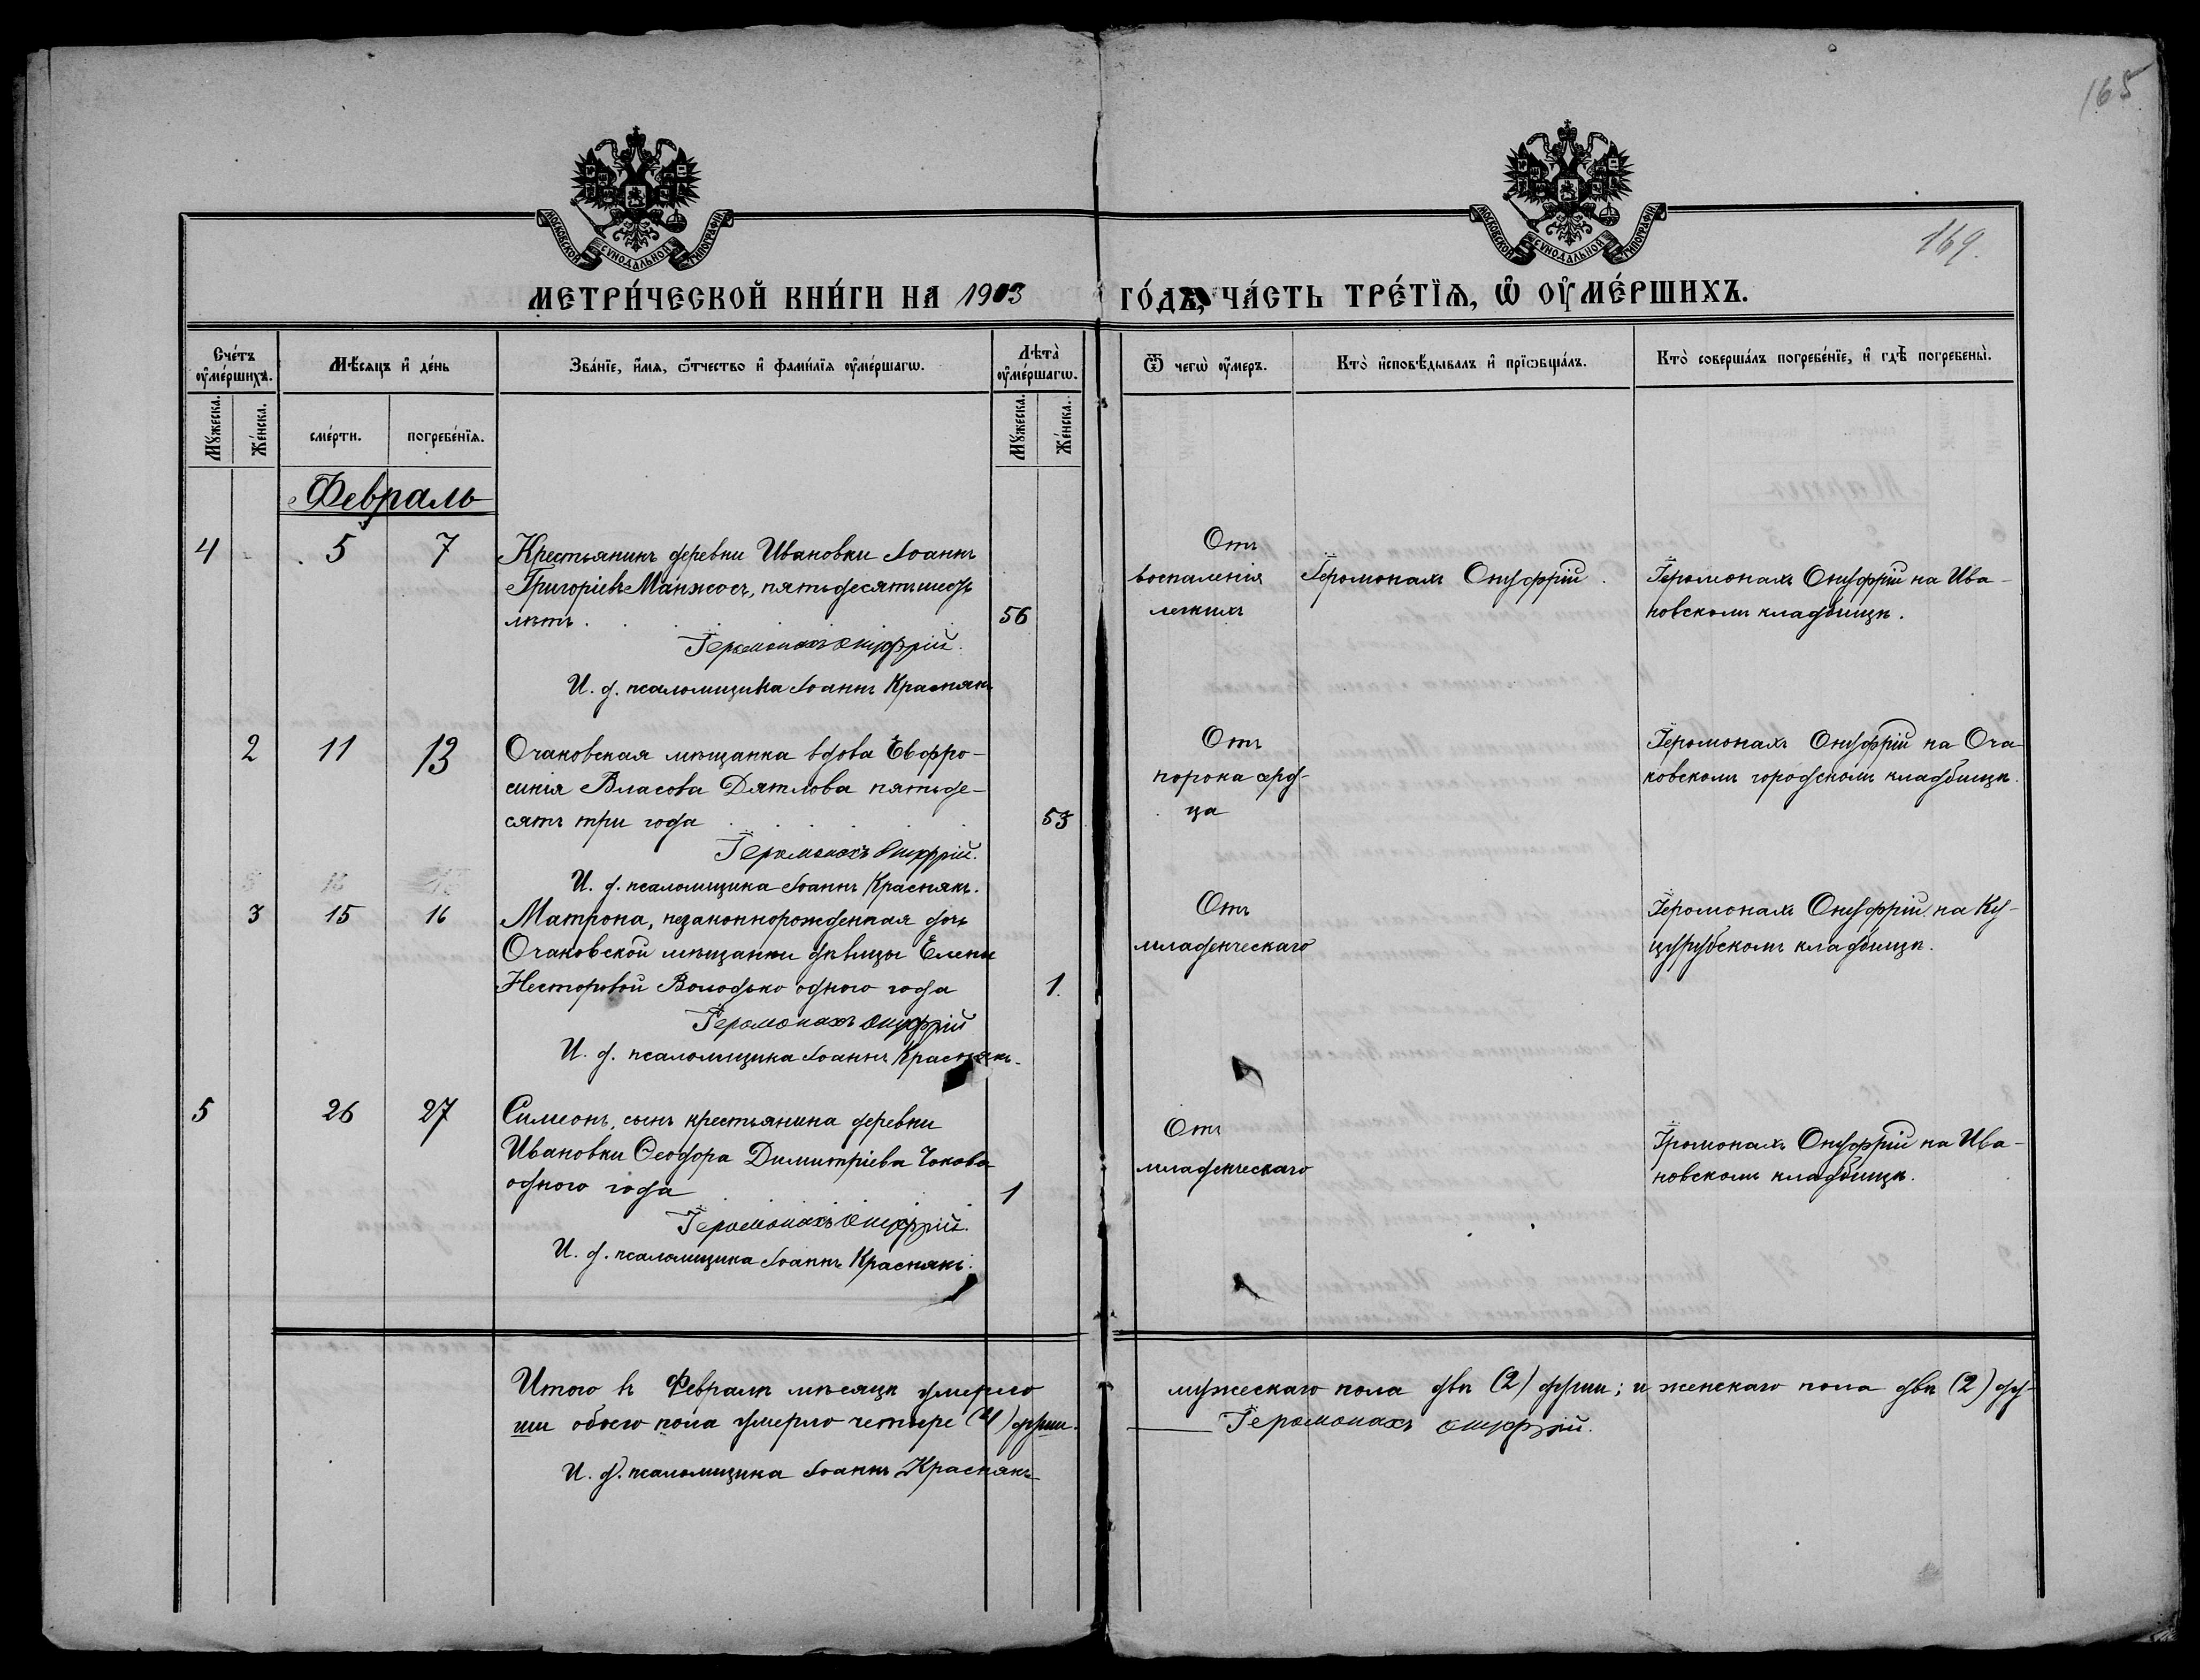 165
169.
МОСКОВСКОЙ СѴНОДАЛЬНОЙ ТИПОГРАФІИ
МОСКОВСКОЙ СѴНОДАЛЬНОЙ ТИПОГРАФІИ
МЕТРИ́ЧЕСКОЙ КНИ́ГИ НА 1903 ГО́ДЪ, ЧА́СТЬ ТРЕ́ТЇѦ, Ѡ҆ ОУ҆МЕ́РШИХЪ.
Сче́тъ оу҆ме́ршихъ.
Мѣ́сяцъ и҆ де́нь
Зва́нїе, и҆́мѧ, ѻ҆́тчество и҆ фами́лїѧ оу҆ме́ршагѡ.
Лѣта̀ оу҆ме́ршагѡ.
Ѿ чегѡ̀ оу҆́меръ.
Кто̀ и҆сповѣ́дывалъ и҆ прїѡбща́лъ.
Кто̀ соверша́лъ погребе́нїе, и҆ гдѣ̀ погребены̀.
Мꙋ́жеска.
Же́нска.
сме́рти.
погребе́нїѧ.
Мꙋ́жеска.
Же́нска.
Февраль
4 5 7 Крестьянинъ деревни Ивановки Іоаннъ
Григоріевъ Манжосъ, пятьдесятъ шесть
лѣтъ . 56
Іеромонахъ Онуфрій.
И. д. псаломщика Іоаннъ Краснякъ
Отъ
воспаленія
легкихъ
Іеромонахъ Онуфрій.
Іеромонахъ Онуфрій на Ива-
новскомъ кладбищѣ.
2 11 13 Очаковская мѣщанка вдова Евфро-
синія Власова Дятлова пятьде-
сятъ три года 53
Іеромонахъ Онуфрій.
И. д. псаломщика Іоаннъ Краснякъ.
Отъ
порока серд-
ца
Іеромонахъ Онуфрій на Оча-
ковскомъ городскомъ кладбищѣ.
3 15 16 Матрона, незаконнорожденная дочь
Очаковской мѣщанки дѣвицы Елены
Несторовой Володько одного года 1.
Іеромонахъ Онуфрій
И. д. псаломщика Іоаннъ Краснякъ.
Отъ
младенческаго
Іеромонахъ Онуфрій на Ку-
цурубскомъ кладбищѣ.
5 26 27 Симеонъ, сынъ крестьянина деревни
Ивановки Ѳеодора Димитріева
одного года 1
Іеромонахъ Онуфрій.
И. д. псаломщика Іоаннъ Краснякъ.
Отъ
младенческаго
Іромонахъ Онуфрій на Ива-
новскомъ кладбищѣ.
Итого въ Февралѣ мѣсяцѣ умерло мужескаго пола двѣ (2) души; и женскаго пола двѣ (2) ду-
ши обоего пола умерло четыре (4) души.
Іеромонахъ Онуфрій.
И. д. псаломщика Іоаннъ Краснякъ